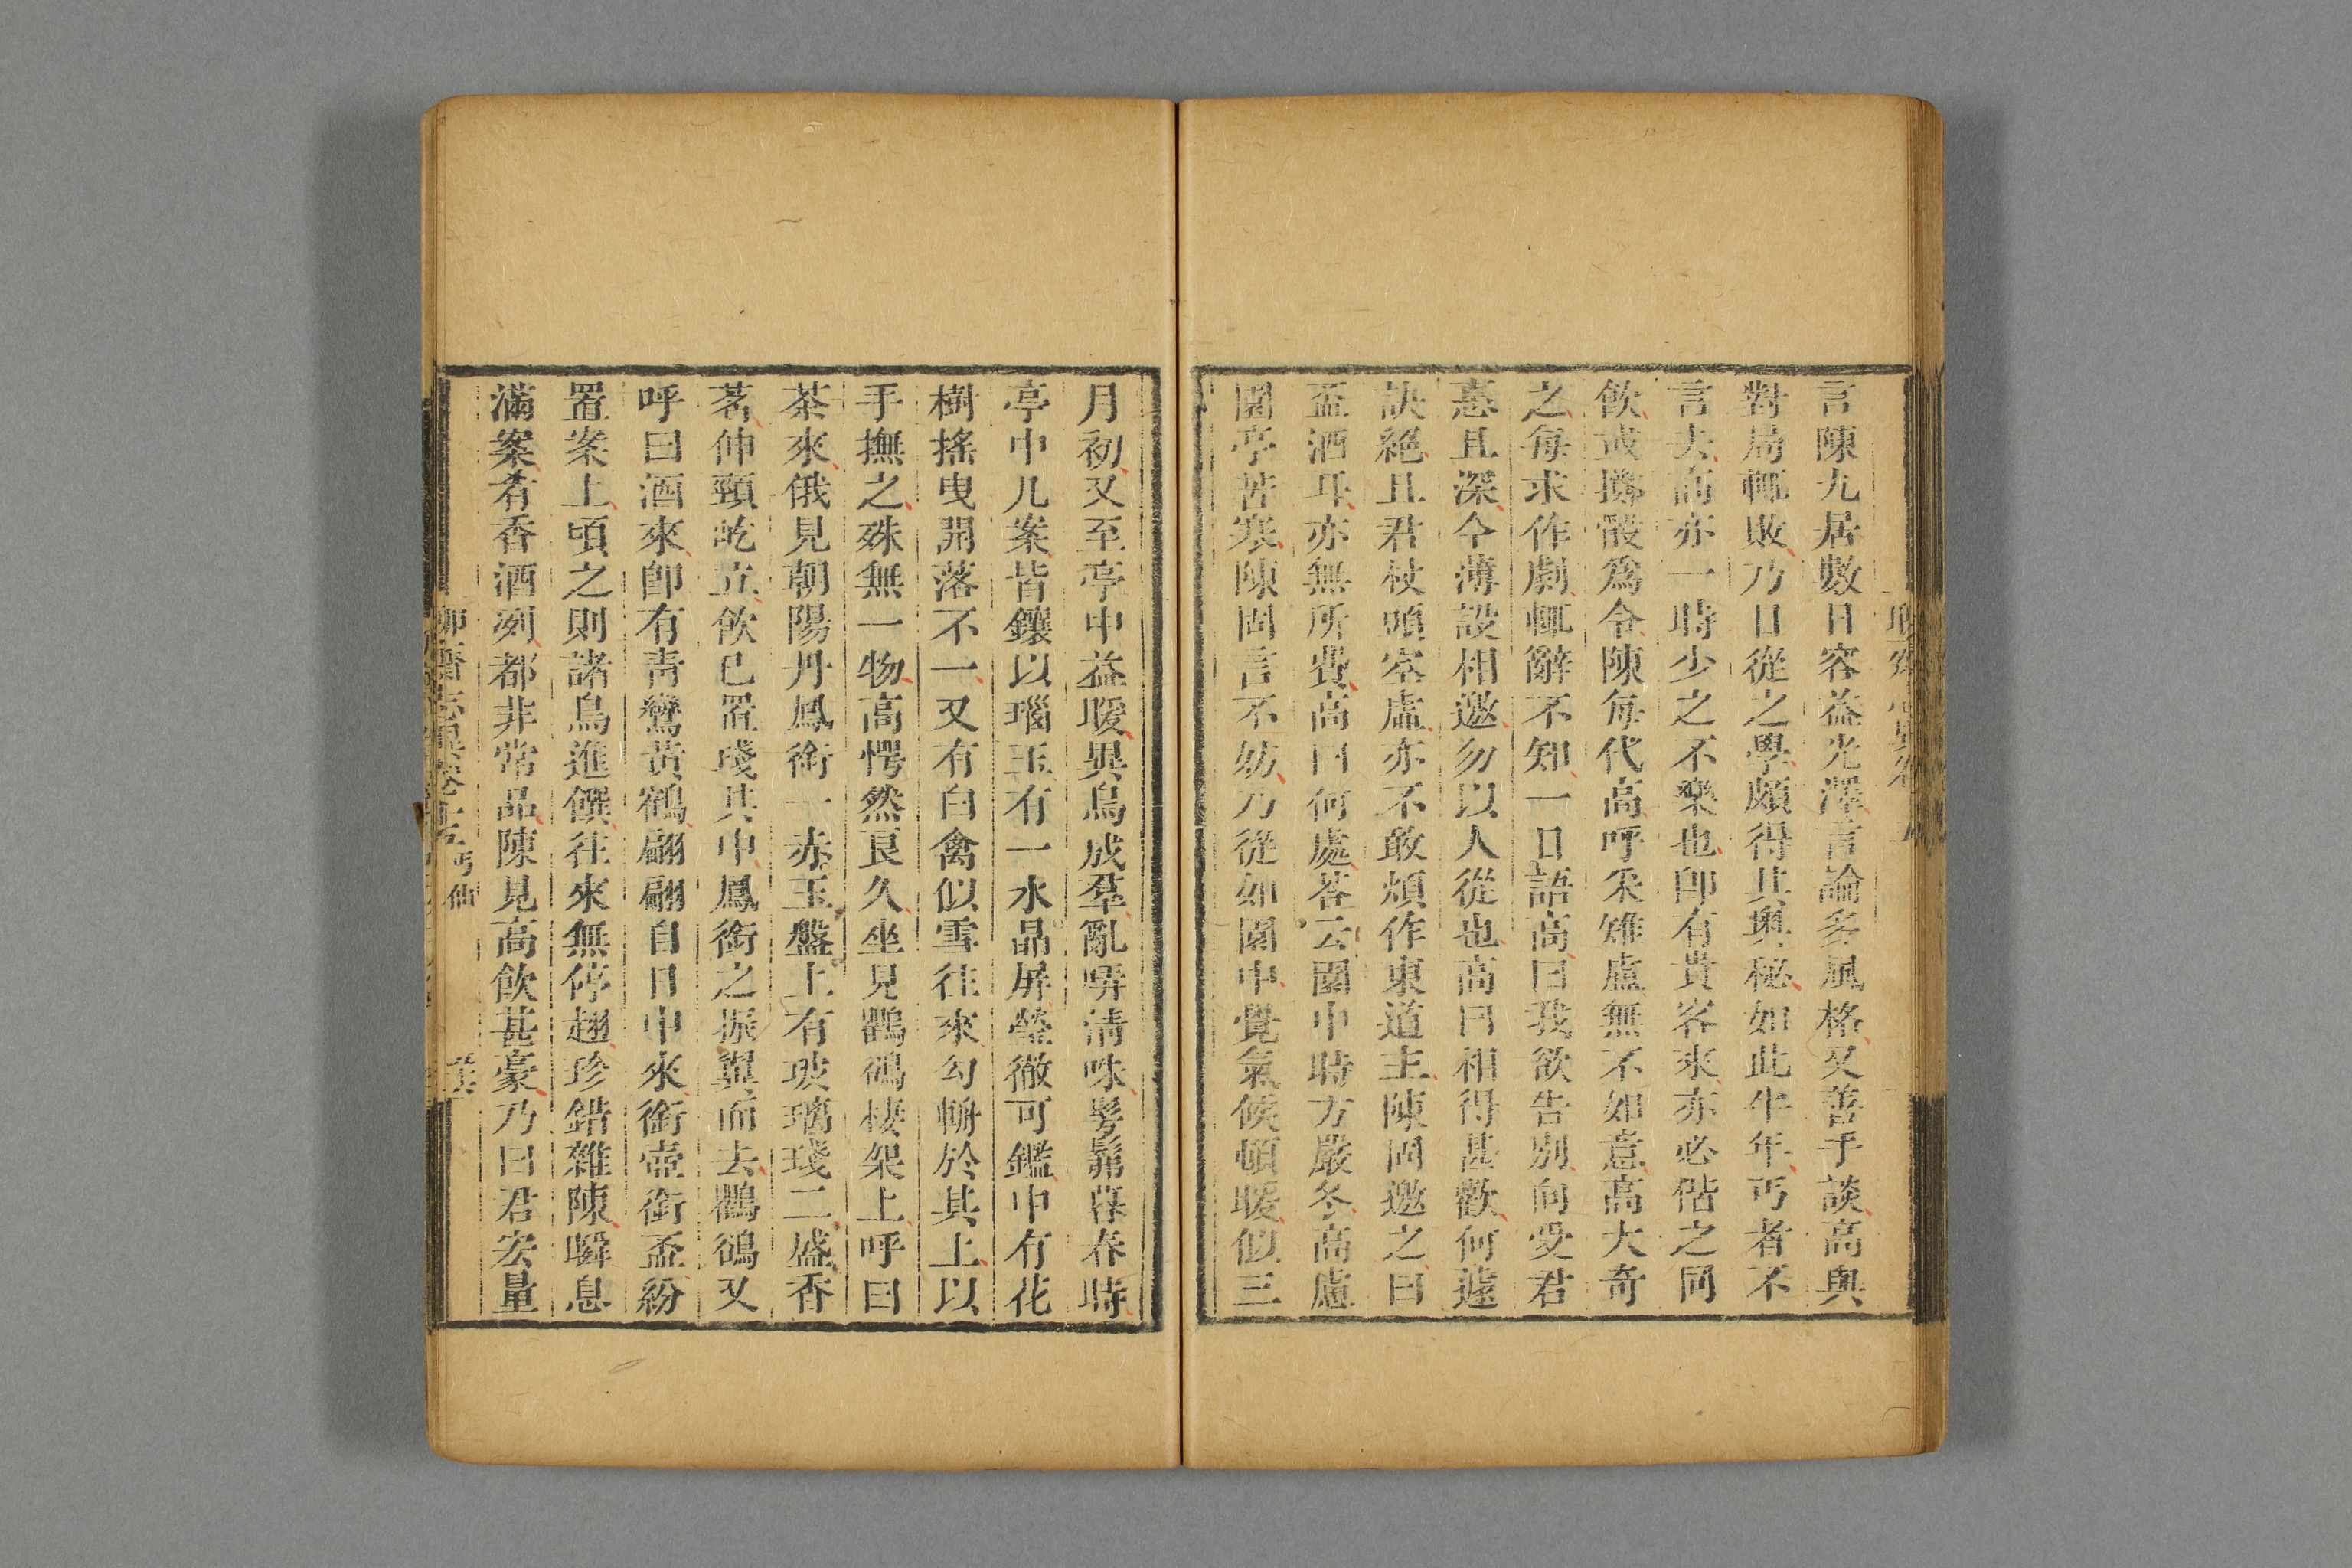 言陳九居數日容益光澤言論多風格又善手談高與
對局輒敗乃日從之學頗得其奧秘如此半年丐者不
言去高亦一時少之不樂也卽有貴客來亦必偕之同
飲或擲骰爲令陳每代高呼采雉盧無不如意高大奇
之每求作劇輒辭不知一日語高曰我欲告別向受君
惠且深今薄設相邀勿以人從也高曰相得甚歡何遽
訣絕且君杖頭空虛亦不敢煩作東道主陳固邀之曰
盃酒耳亦無所費高曰何處荅云園中時方嚴冬高慮
園亭苦寒陳固言不妨乃從如園中覺氣候頓暖似三
月初又至亭中益暖異鳥成羣亂哢清咮髣髴暮春時
亭中几案皆鑲以瑙玉有一水晶屏瑩徹可鑑中有花
樹搖曳開落不一又有白禽似雪往來勾輈於其上以
手撫之殊無一物高愕然良久坐見鸜鵒棲架上呼曰
茶來俄見朝陽丹鳳銜一赤玉盤上有玻璃琖二盛香
茗伸頸屹立飲已置琖其中鳳銜之振翼而去鸜鵒又
呼曰酒來卽有靑鸞黃鶴翩翩自日中來銜壺銜盃紛
置案上頃之則諸鳥進饌往來無停翅珍錯雜陳瞬息
滿案肴香酒洌都非常品陳見高飲甚豪乃曰君宏量
聊齋志異卷十五 丐仙